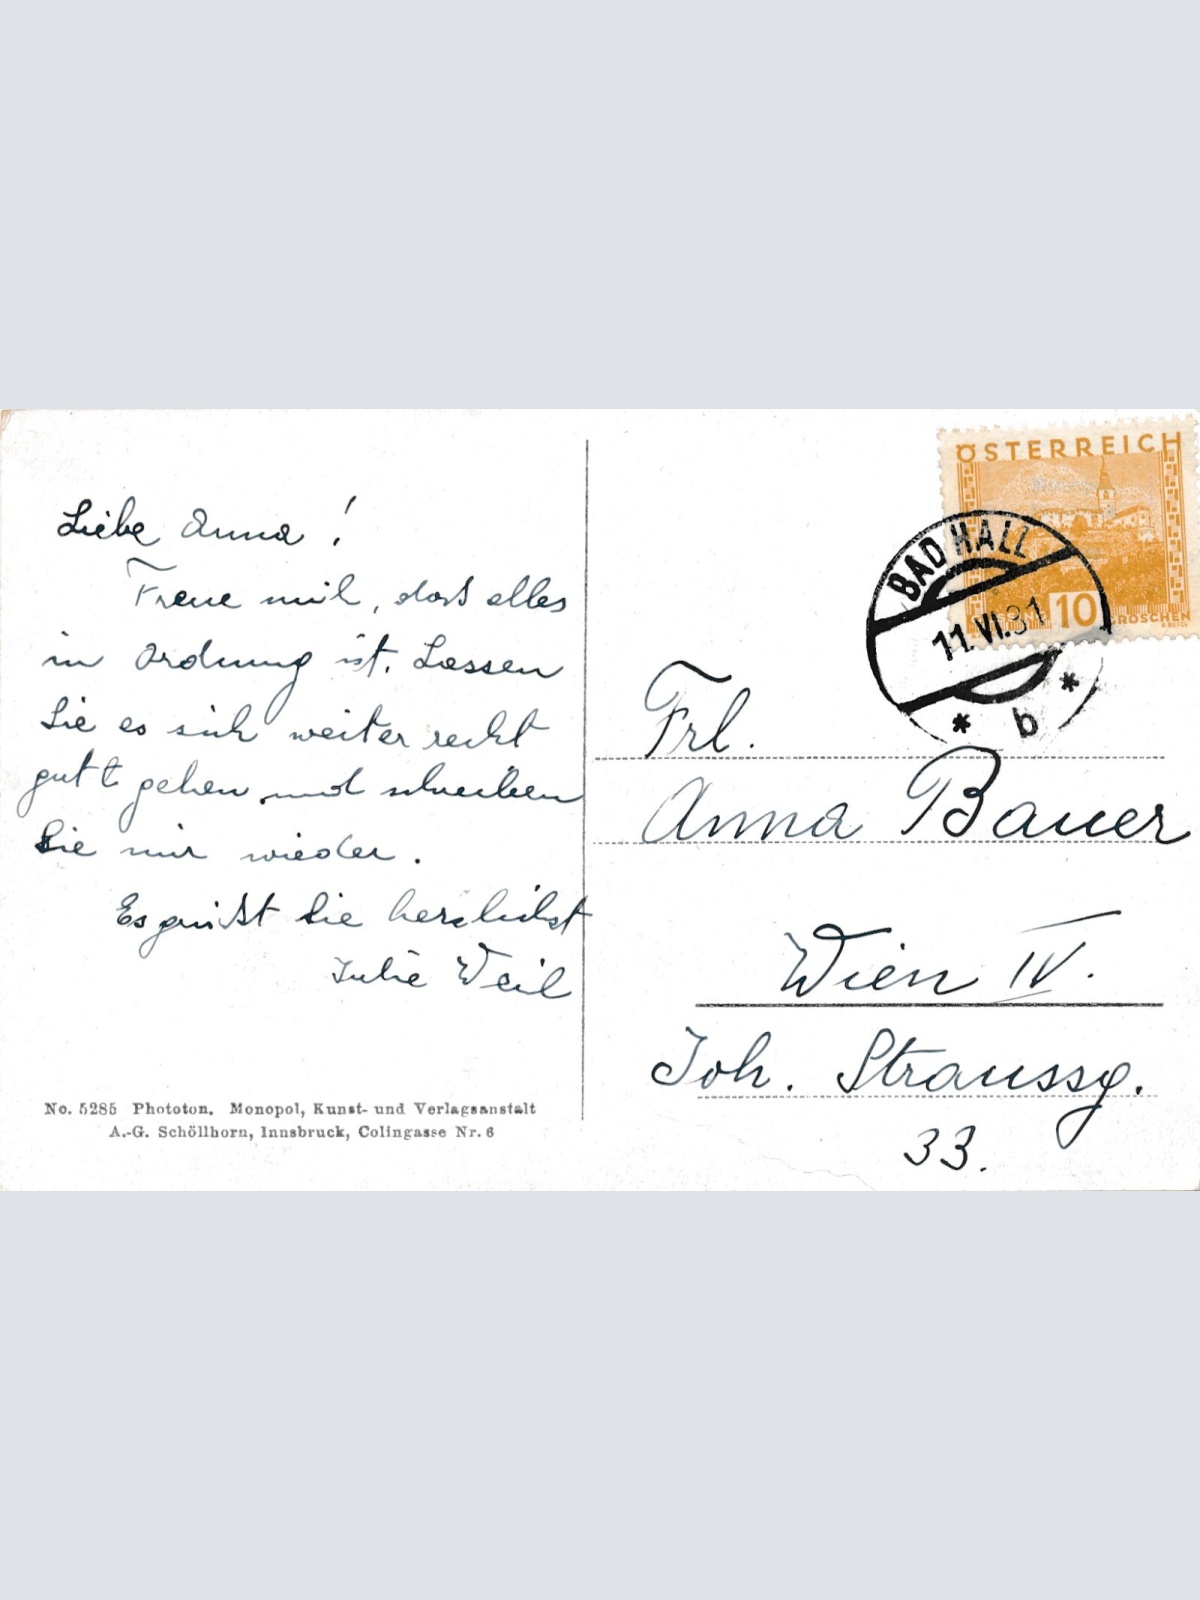 Liebe Anna!
Freue mich, dass alles
in Ordnung ist. Lassen
Sie es sich weiter recht
gut gehen und schreiben
Sie mir wieder.
Es grüßt Sie herzlichst
Julie Weil
No. 5285 Phototon. Monopol, Kunst- und Verlagsanstalt
A.-G. Schöllhorn, Innsbruck, Colingasse Nr. 6
ÖSTERREICH
10
GROSCHEN
BAD HALL
11.VI.31
* b *
Frl.
Anna Bauer
Wien IV.
Joh. Straussg.
33.